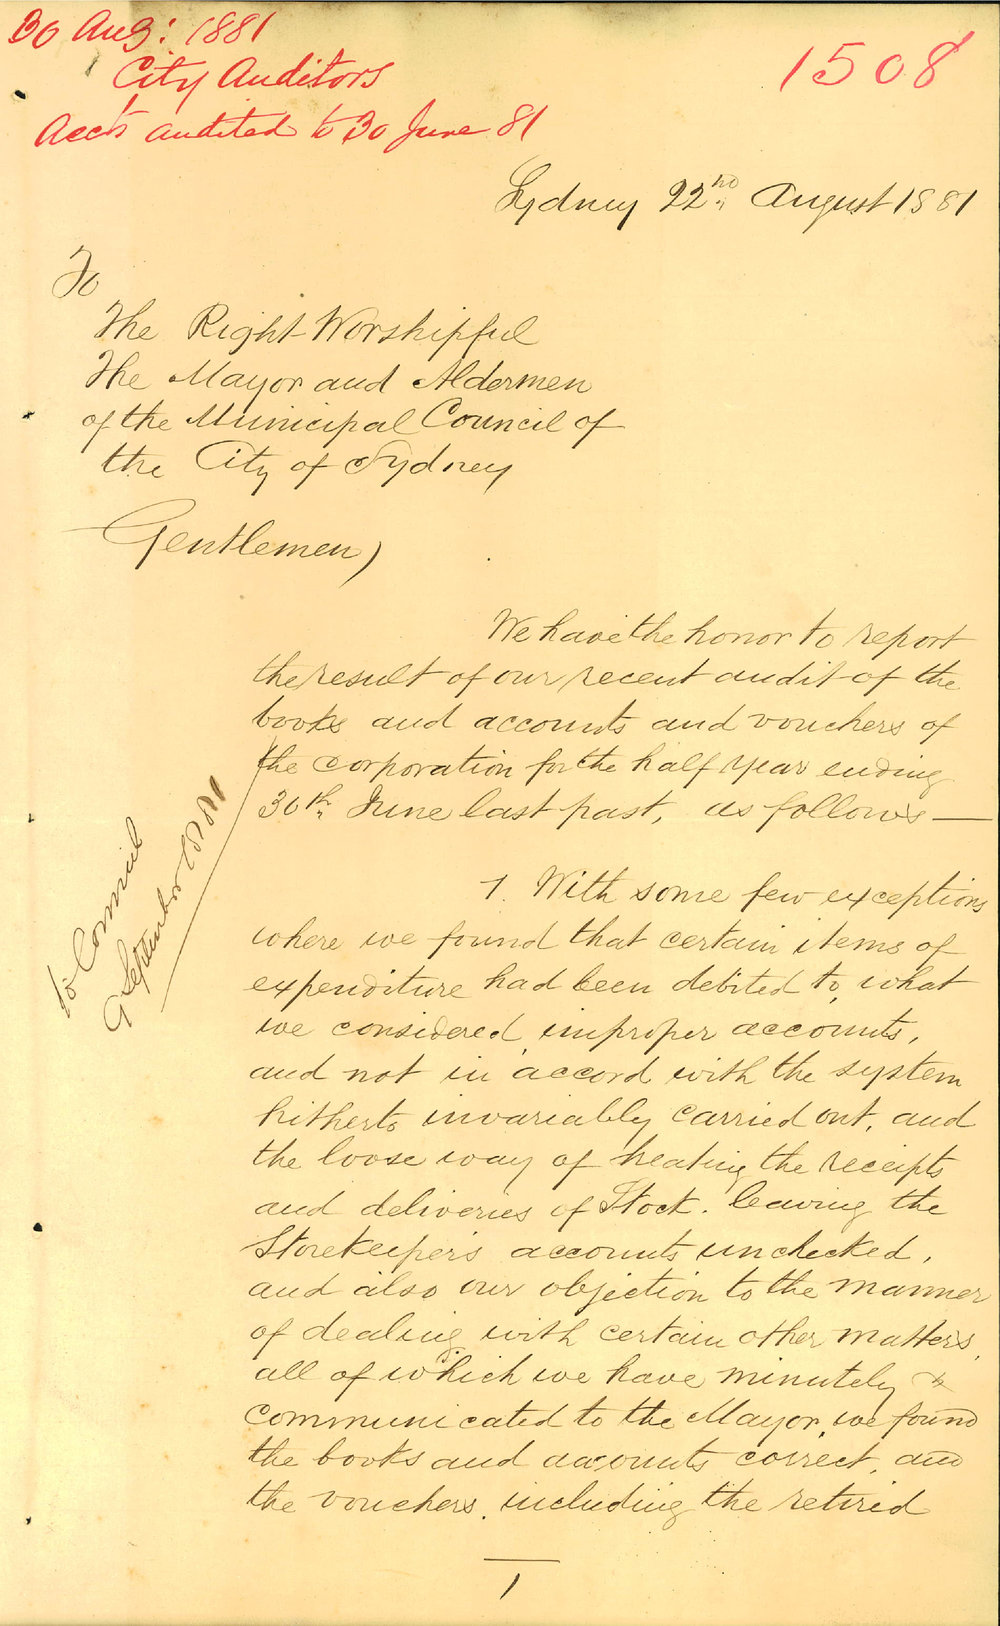 30 Aug: 1881
City Auditors
Accts audited to 30 June 81
1508
Sydney 22nd August 1881
To
The Right Worshipful
The Mayor and Aldermen
of the Municipal Council of
the City of Sydney
Gentlemen,
We have the honor to report
the result of our recent audit of the
books and accounts and vouchers of
the corporation for the half year ending
30th June last past, as follows —
to Council
9 September 1881
1. With some few exceptions
where we found that certain items of
expenditure had been debited to, what
we considered, improper accounts,
and not in accord with the system
hitherto invariably carried out, and
the loose way of treating the receipts
and deliveries of Stock. leaving the
Storekeeper's accounts unchecked,
and also our objection to the manner
of dealing with certain other matters,
all of which we have minutely &
communicated to the Mayor, we found
the books and accounts correct, and
the vouchers, including the retired
1